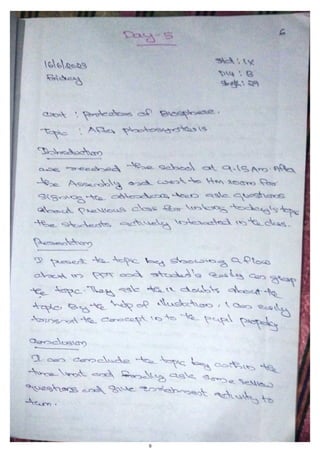 Day-5
6
16/6/2023
Std : IX
Friday
Div : B
Strgth : 29
Unit : Protectors of Biosphere.
Topic : After photosynthesis
Introduction
we reached the school at 9.15 Am. After
the Assembly and went to HM room for
signing the attendance, then ask questions
about previous class for linking today's topic
the students actively interacted in the class.
Presentation
I present the topic by showing a flow
chart in PPT and students easily can grasp
the topic. They ask their doubts about the
topic. By the help of illustration, I can easily
transmit the concept in to the pupil properly.
Conclusion
I can conclude the topic by within the
time limit and finally ask some review
questions and give enrichment activity to
them.
9